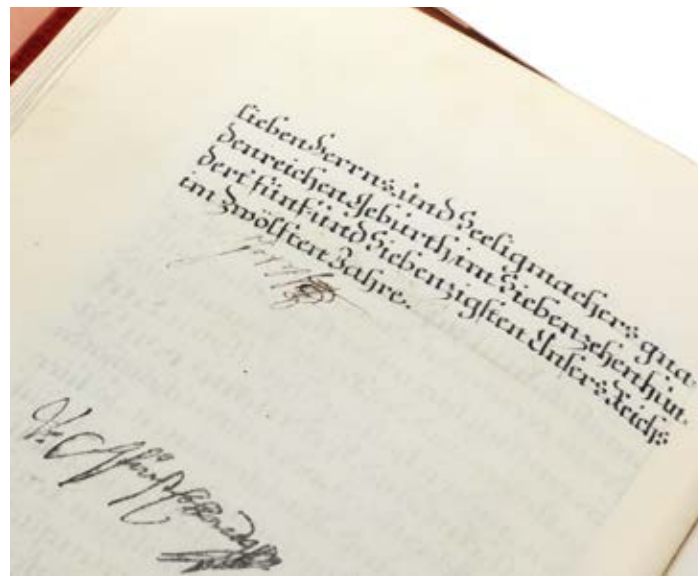 lieben Herrns, und Seeligmachers gna-
denreichen Geburth, im Siebenzehenhun-
dert fünf und Siebenzigsten Unsers Reichs
im Zwölften Jahre.